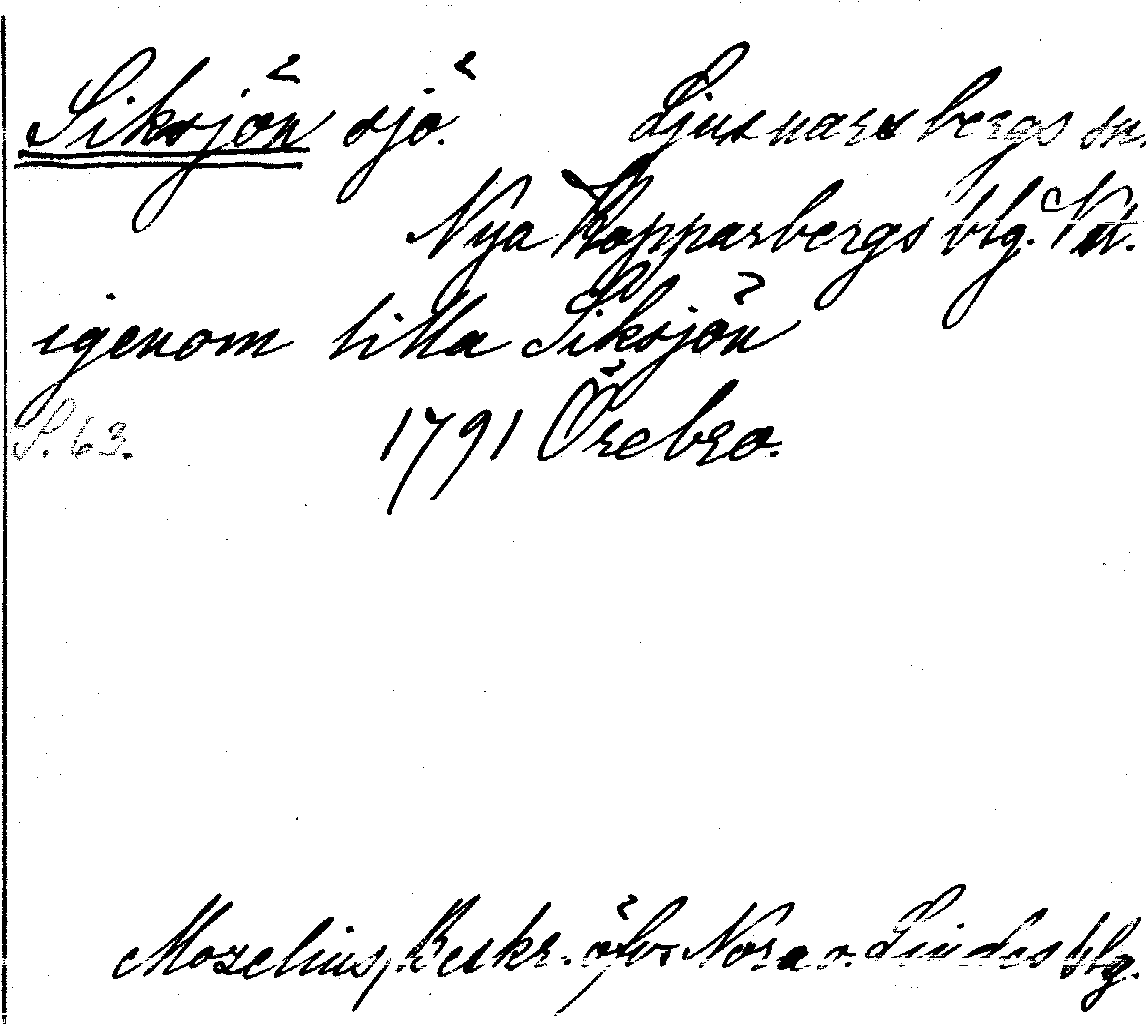 Siksjön sjö. Ljusnarsbergs sn.
Nya Kopparbergs blg. Vtl.
igenom lilla Siksjön
S. 63. 1791 Örebro.
Mozelius, Beskr. öfver Nora o. Lindes blg.